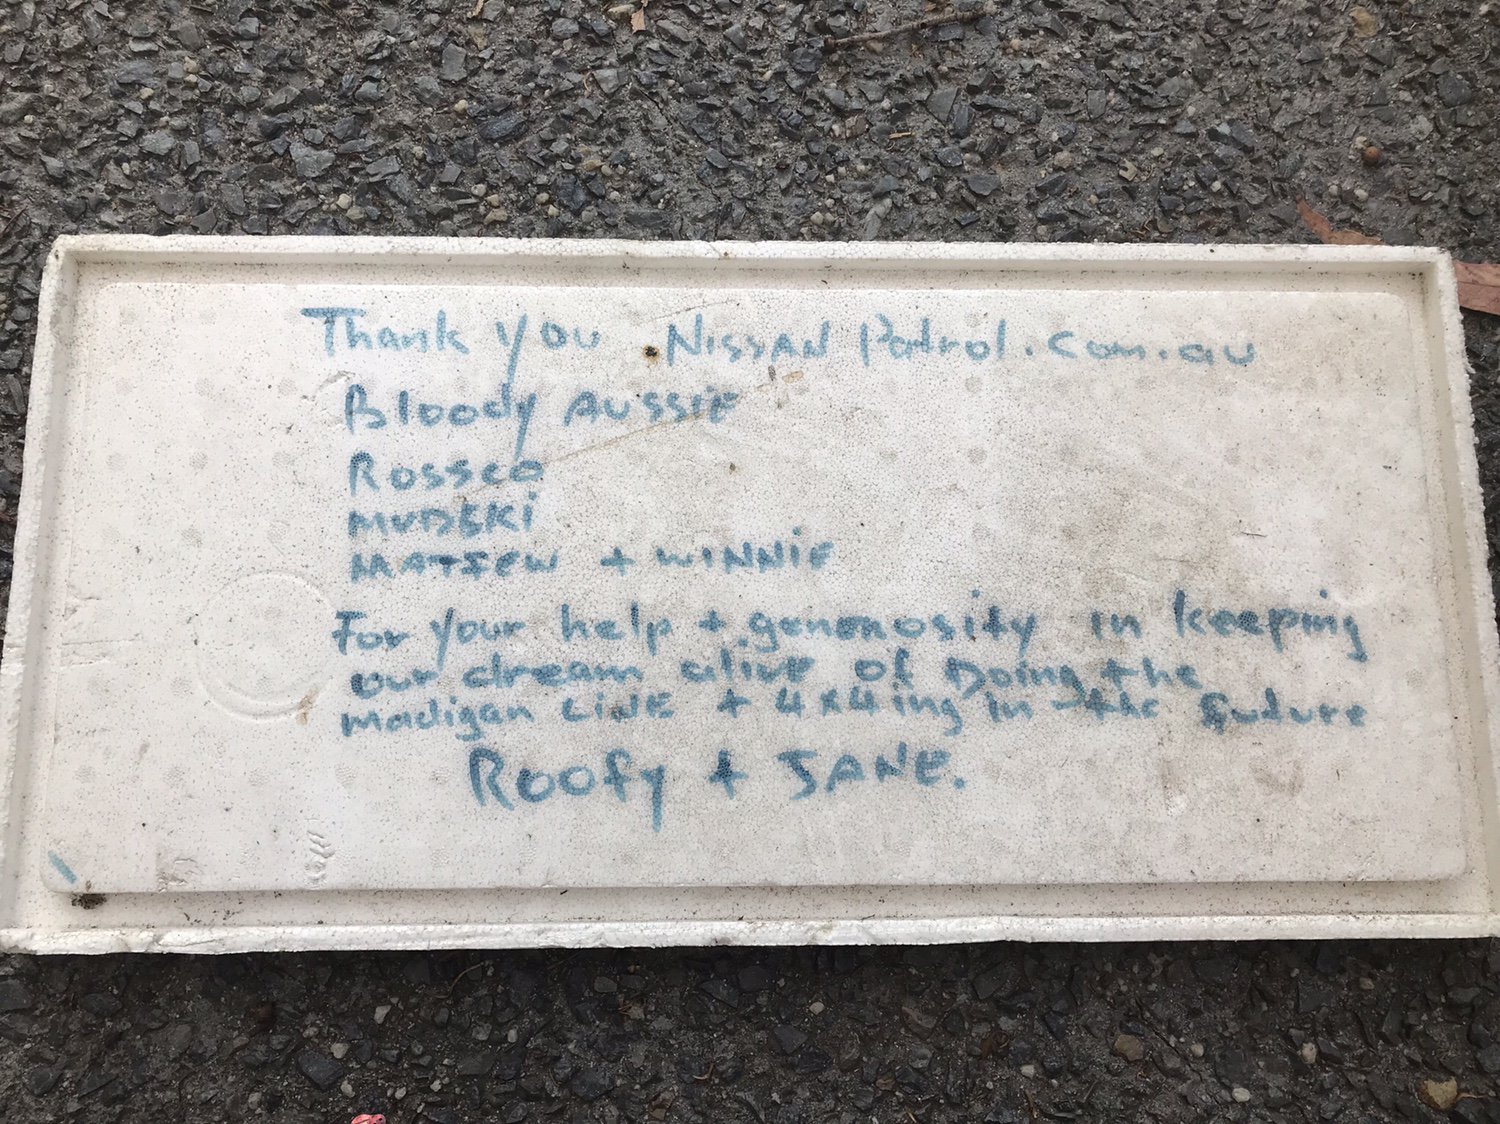 Thank you NISSAN Patrol.com.au
Bloody AUSSIE
Rossco
MUDSKI
MATSEW + WINNIE
For your help + generosity in keeping
our dream alive of Doing the
madigan LINE + 4x4ing in the future
Roofy + JANE.